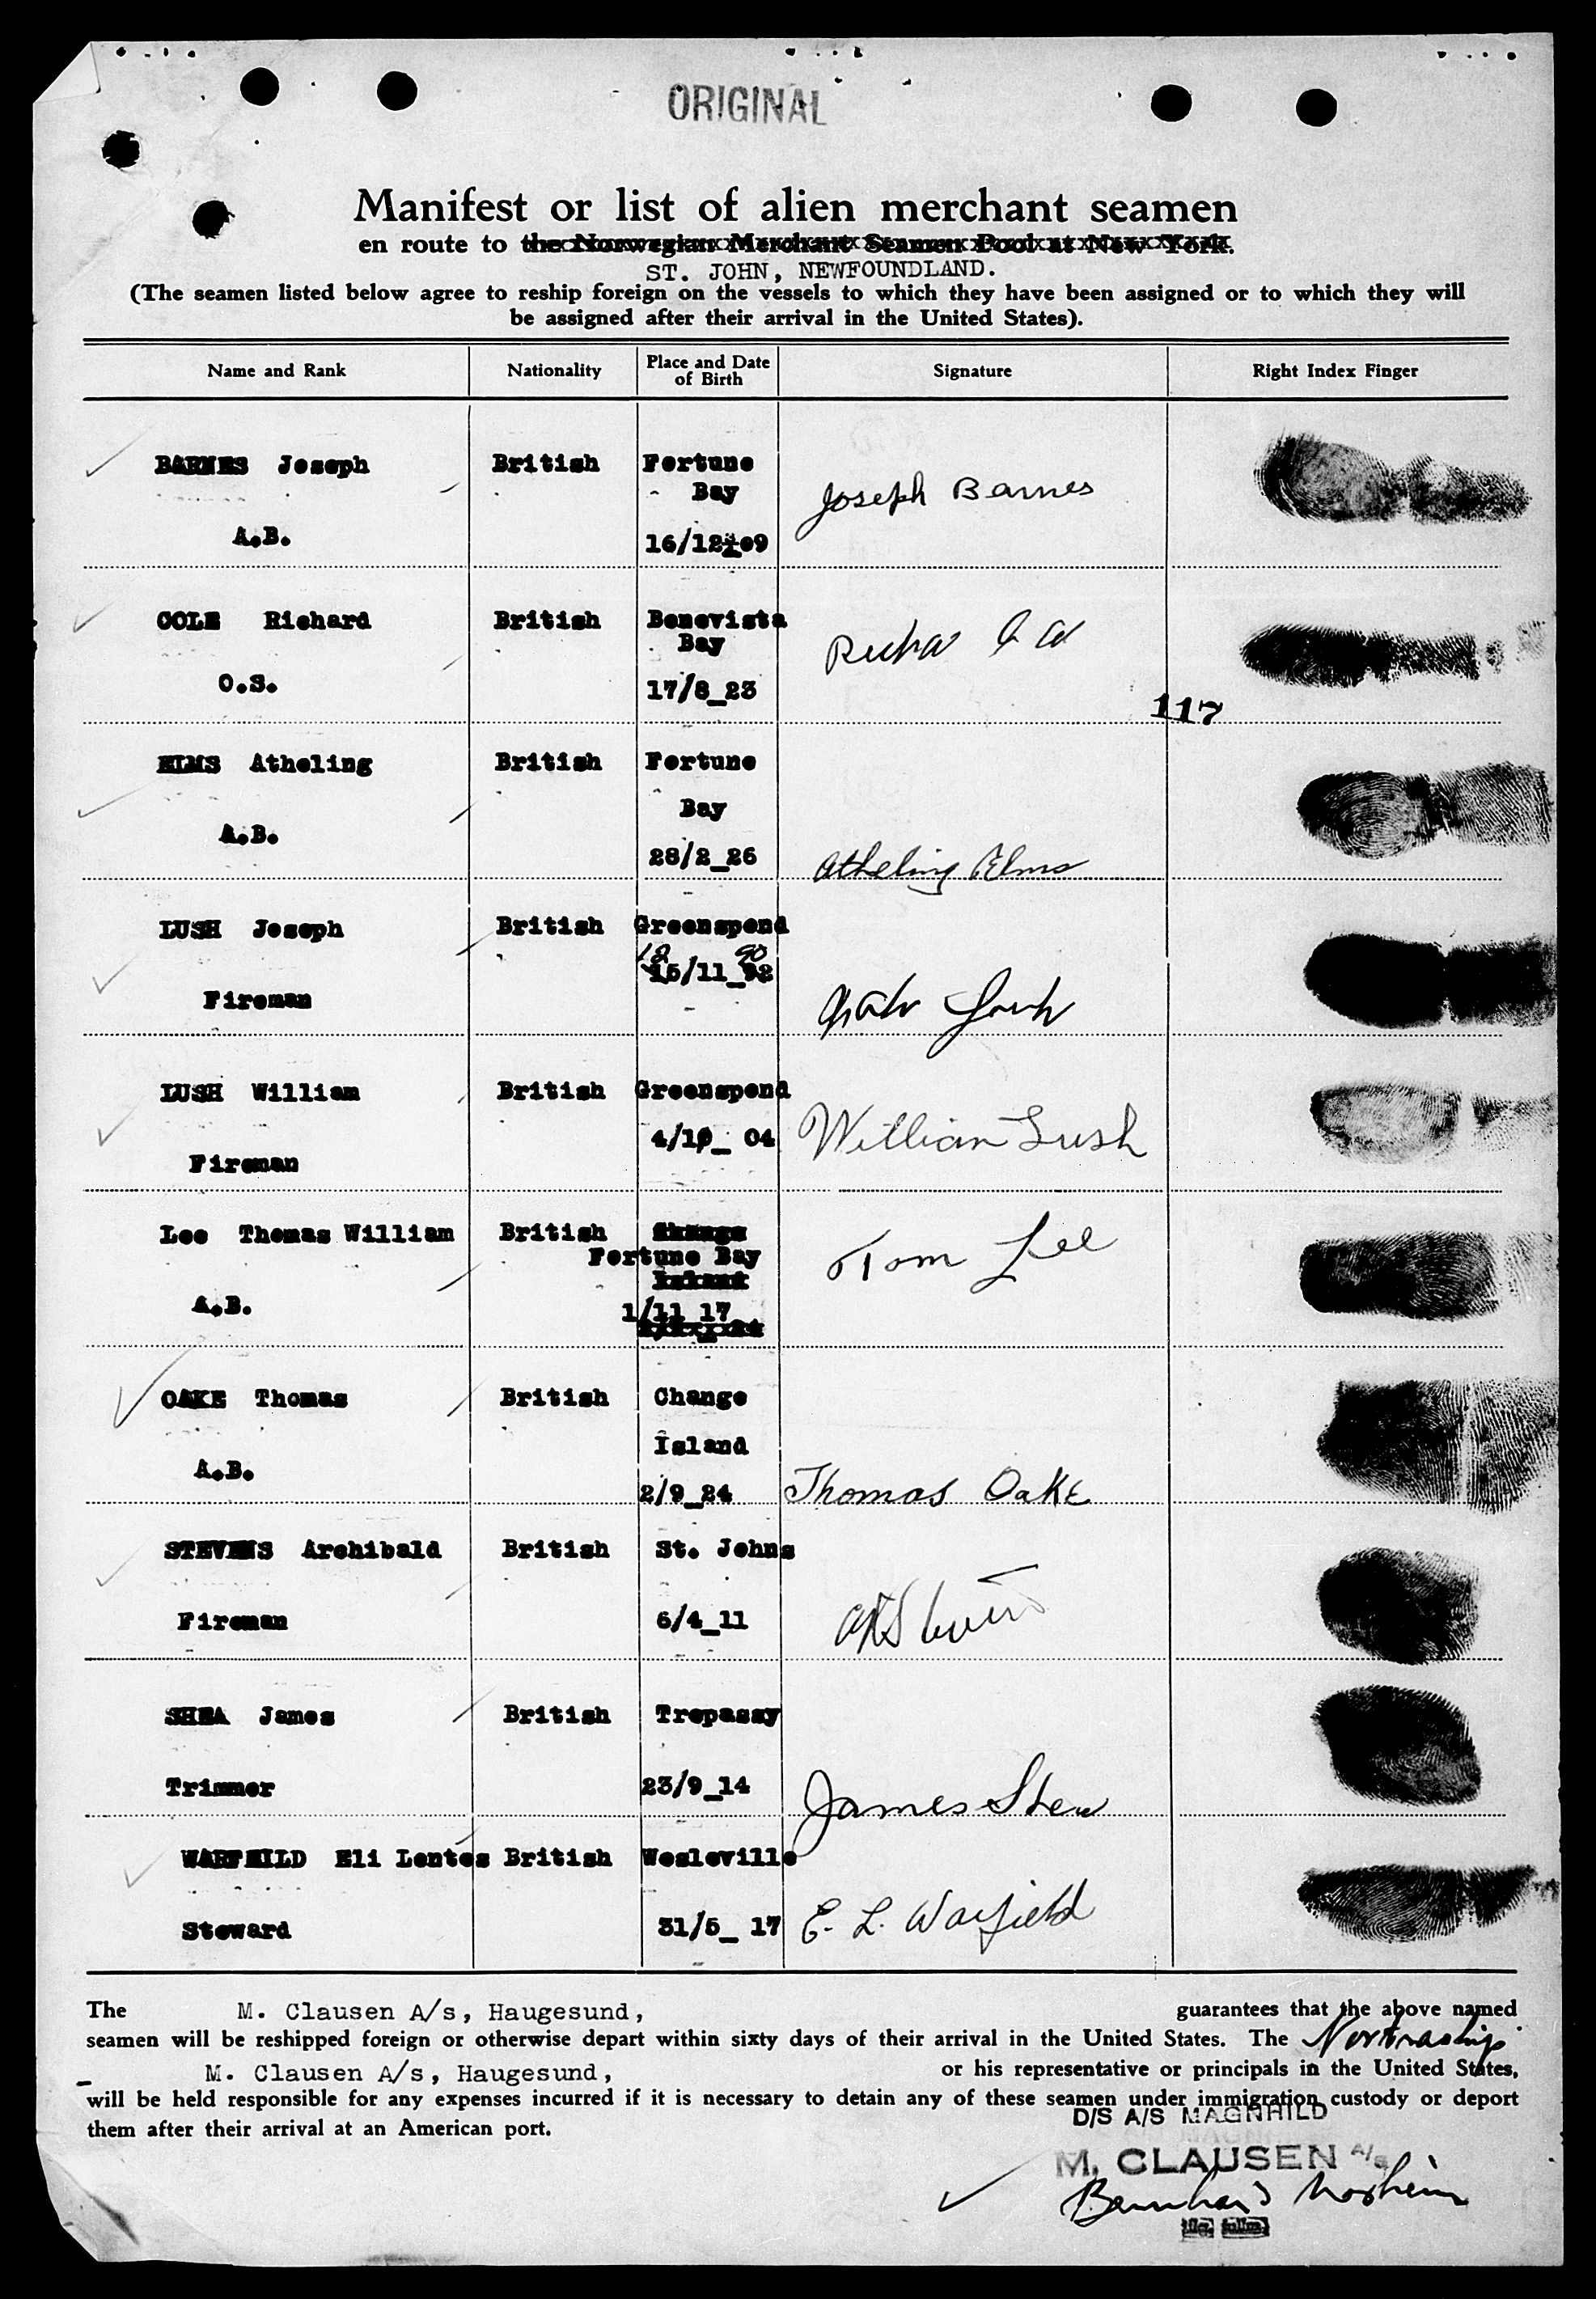 ORIGINAL
Manifest or list of alien merchant seamen
en route to the Norwegian Merchant Seamen Pool at New York.
ST. JOHN, NEWFOUNDLAND.
(The seamen listed below agree to reship foreign on the vessels to which they have been assigned or to which they will
be assigned after their arrival in the United States).
Name and Rank Nationality Place and Date of Birth Signature Right Index Finger
BARNES Joseph British Fortune
Bay Joseph Barnes
A.B. 16/12 09
COLE Richard British Bonevista
Bay
O.S. 17/8_23
117
ELMS Atheling British Fortune
Bay
A.B. 28/2_26 Atheling Elms
LUSH Joseph British Greenspond
18 90
15/11_92
Fireman
LUSH William British Greenspond
4/10_ 04 William Lush
Fireman
Lee Thomas William British Change
Fortune Bay Tom Lee
Island
A.B. 1/11 17
OAKE Thomas British Change
Island
A.B. 2/9_24 Thomas Oake
STEVENS Archibald British St. Johns
Fireman 6/4_11
SHEA James British Trepassy
Trimmer 23/9_14 James Shea
WARFEILD Eli Lentes British Wesleville
Steward 31/5_ 17 E. L. Warfield
The M. Clausen A/s, Haugesund, guarantees that the above named
seamen will be reshipped foreign or otherwise depart within sixty days of their arrival in the United States. The Nortraship
M. Clausen A/s, Haugesund, or his representative or principals in the United States,
will be held responsible for any expenses incurred if it is necessary to detain any of these seamen under immigration custody or deport
them after their arrival at an American port.
D/S A/S MAGNHILD
M. CLAUSEN A/S
Bernhard